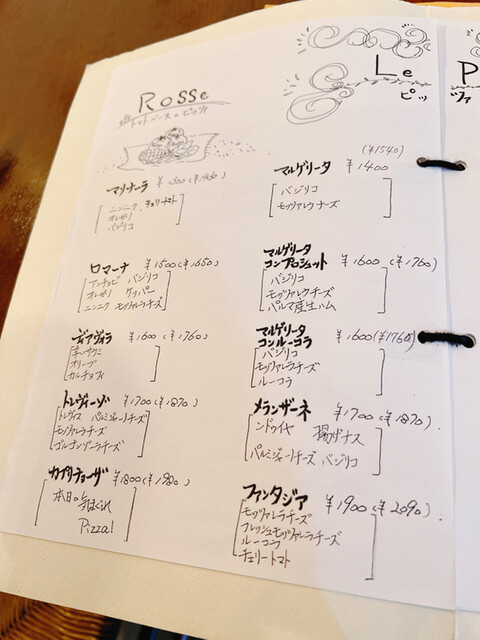 Le
P
ピッ
ツァ
Rosse
トマトベースのピッツァ
マリナーラ
ニンニク、チェリートマト
オレガノ
バジリコ
ロマーナ ¥1500(¥1650)
アンチョビ バジリコ
オレガノ ケッパー
ニンニク モッツァレラチーズ
ディアヴォラ ¥1600(¥1760)
オリーブ
カルチョフィ
トレヴィーゾ ¥1700(¥1870)
トレヴィス パルミジャーノチーズ
モッツァレラチーズ
ゴルゴンゾーラチーズ
カプリチョーザ ¥1800(¥1980)
本日の気まぐれ
Pizza!
(¥1540)
マルゲリータ ¥1400
バジリコ
モッツァレラチーズ
マルゲリータ
コンプロシュット ¥1600(¥1760)
バジリコ
モッツァレラチーズ
パルマ産生ハム
マルゲリータ
コンルーコラ ¥1600(¥1760)
バジリコ
モッツァレラチーズ
ルーコラ
メランザーネ ¥1700(¥1870)
ンドゥイヤ 揚げナス
パルミジャーノチーズ バジリコ
ファンタジア ¥1900(¥2090)
モッツァレラチーズ
フレッシュモッツァレラチーズ
ルーコラ
チェリートマト